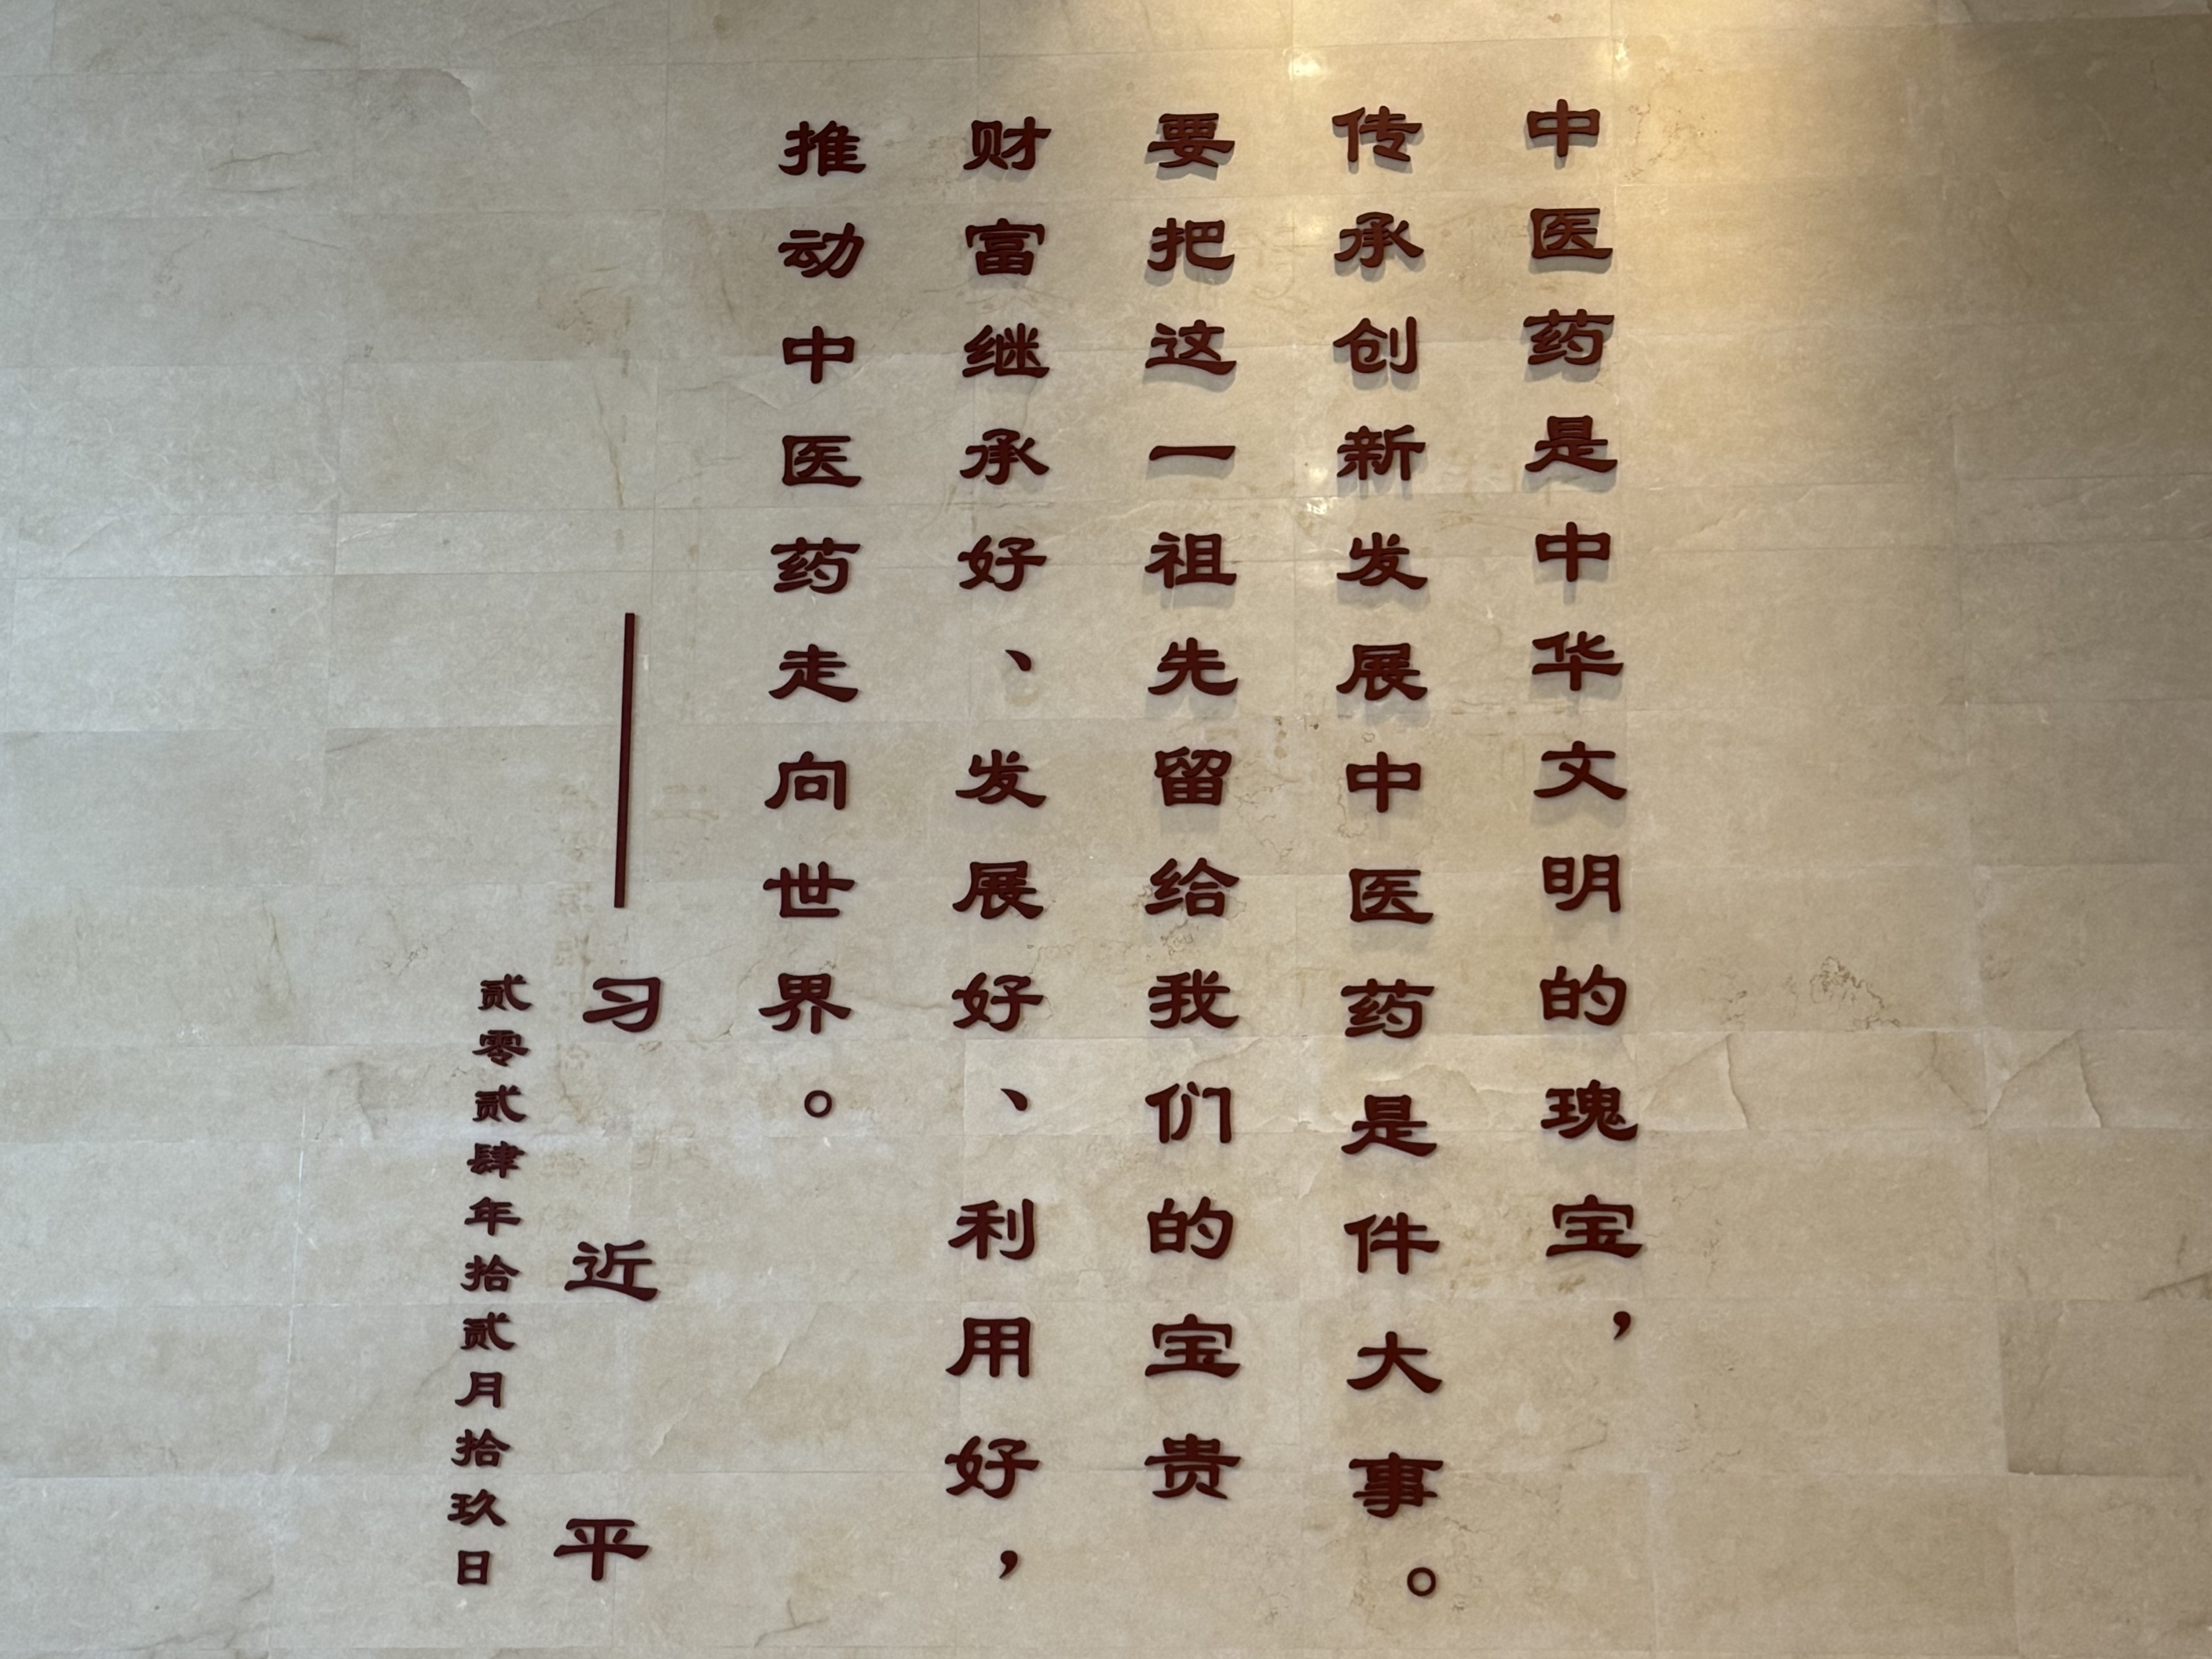 中医药是中华文明的瑰宝，
传承创新发展中医药是件大事。
要把这一祖先留给我们的宝贵
财富继承好、发展好、利用好，
推动中医药走向世界。
——习近平
贰零贰肆年拾贰月拾玖日